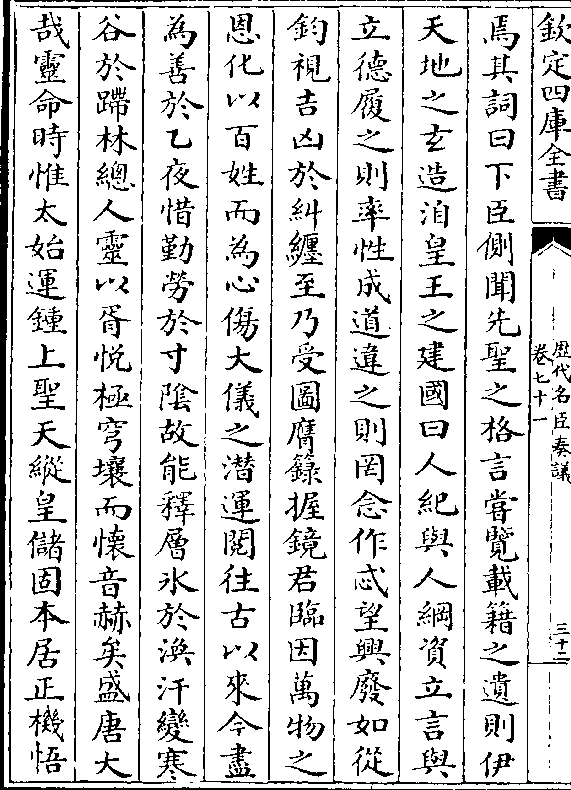 欽定四庫全書
歴代名臣奏議
卷七十一
三十二
焉其詞曰下臣側聞先聖之格言嘗覽載籍之遺則伊
天地之玄造洎皇王之建國曰人紀與人綱資立言與
立德履之則率性成道違之則罔念作忒望興廢如從
鈞視吉凶於糾纆至乃受圖膺籙握鏡君臨因萬物之
恩化以百姓而為心傷大儀之潜運閱往古以來今盡
為善於乙夜惜勤勞於寸陰故能釋層氷於渙汗變寒
谷於蹛林總人靈以胥悦極穹壤而懷音赫矣盛唐大
哉靈命時惟太始運鍾上聖天縱皇儲固本居正機悟